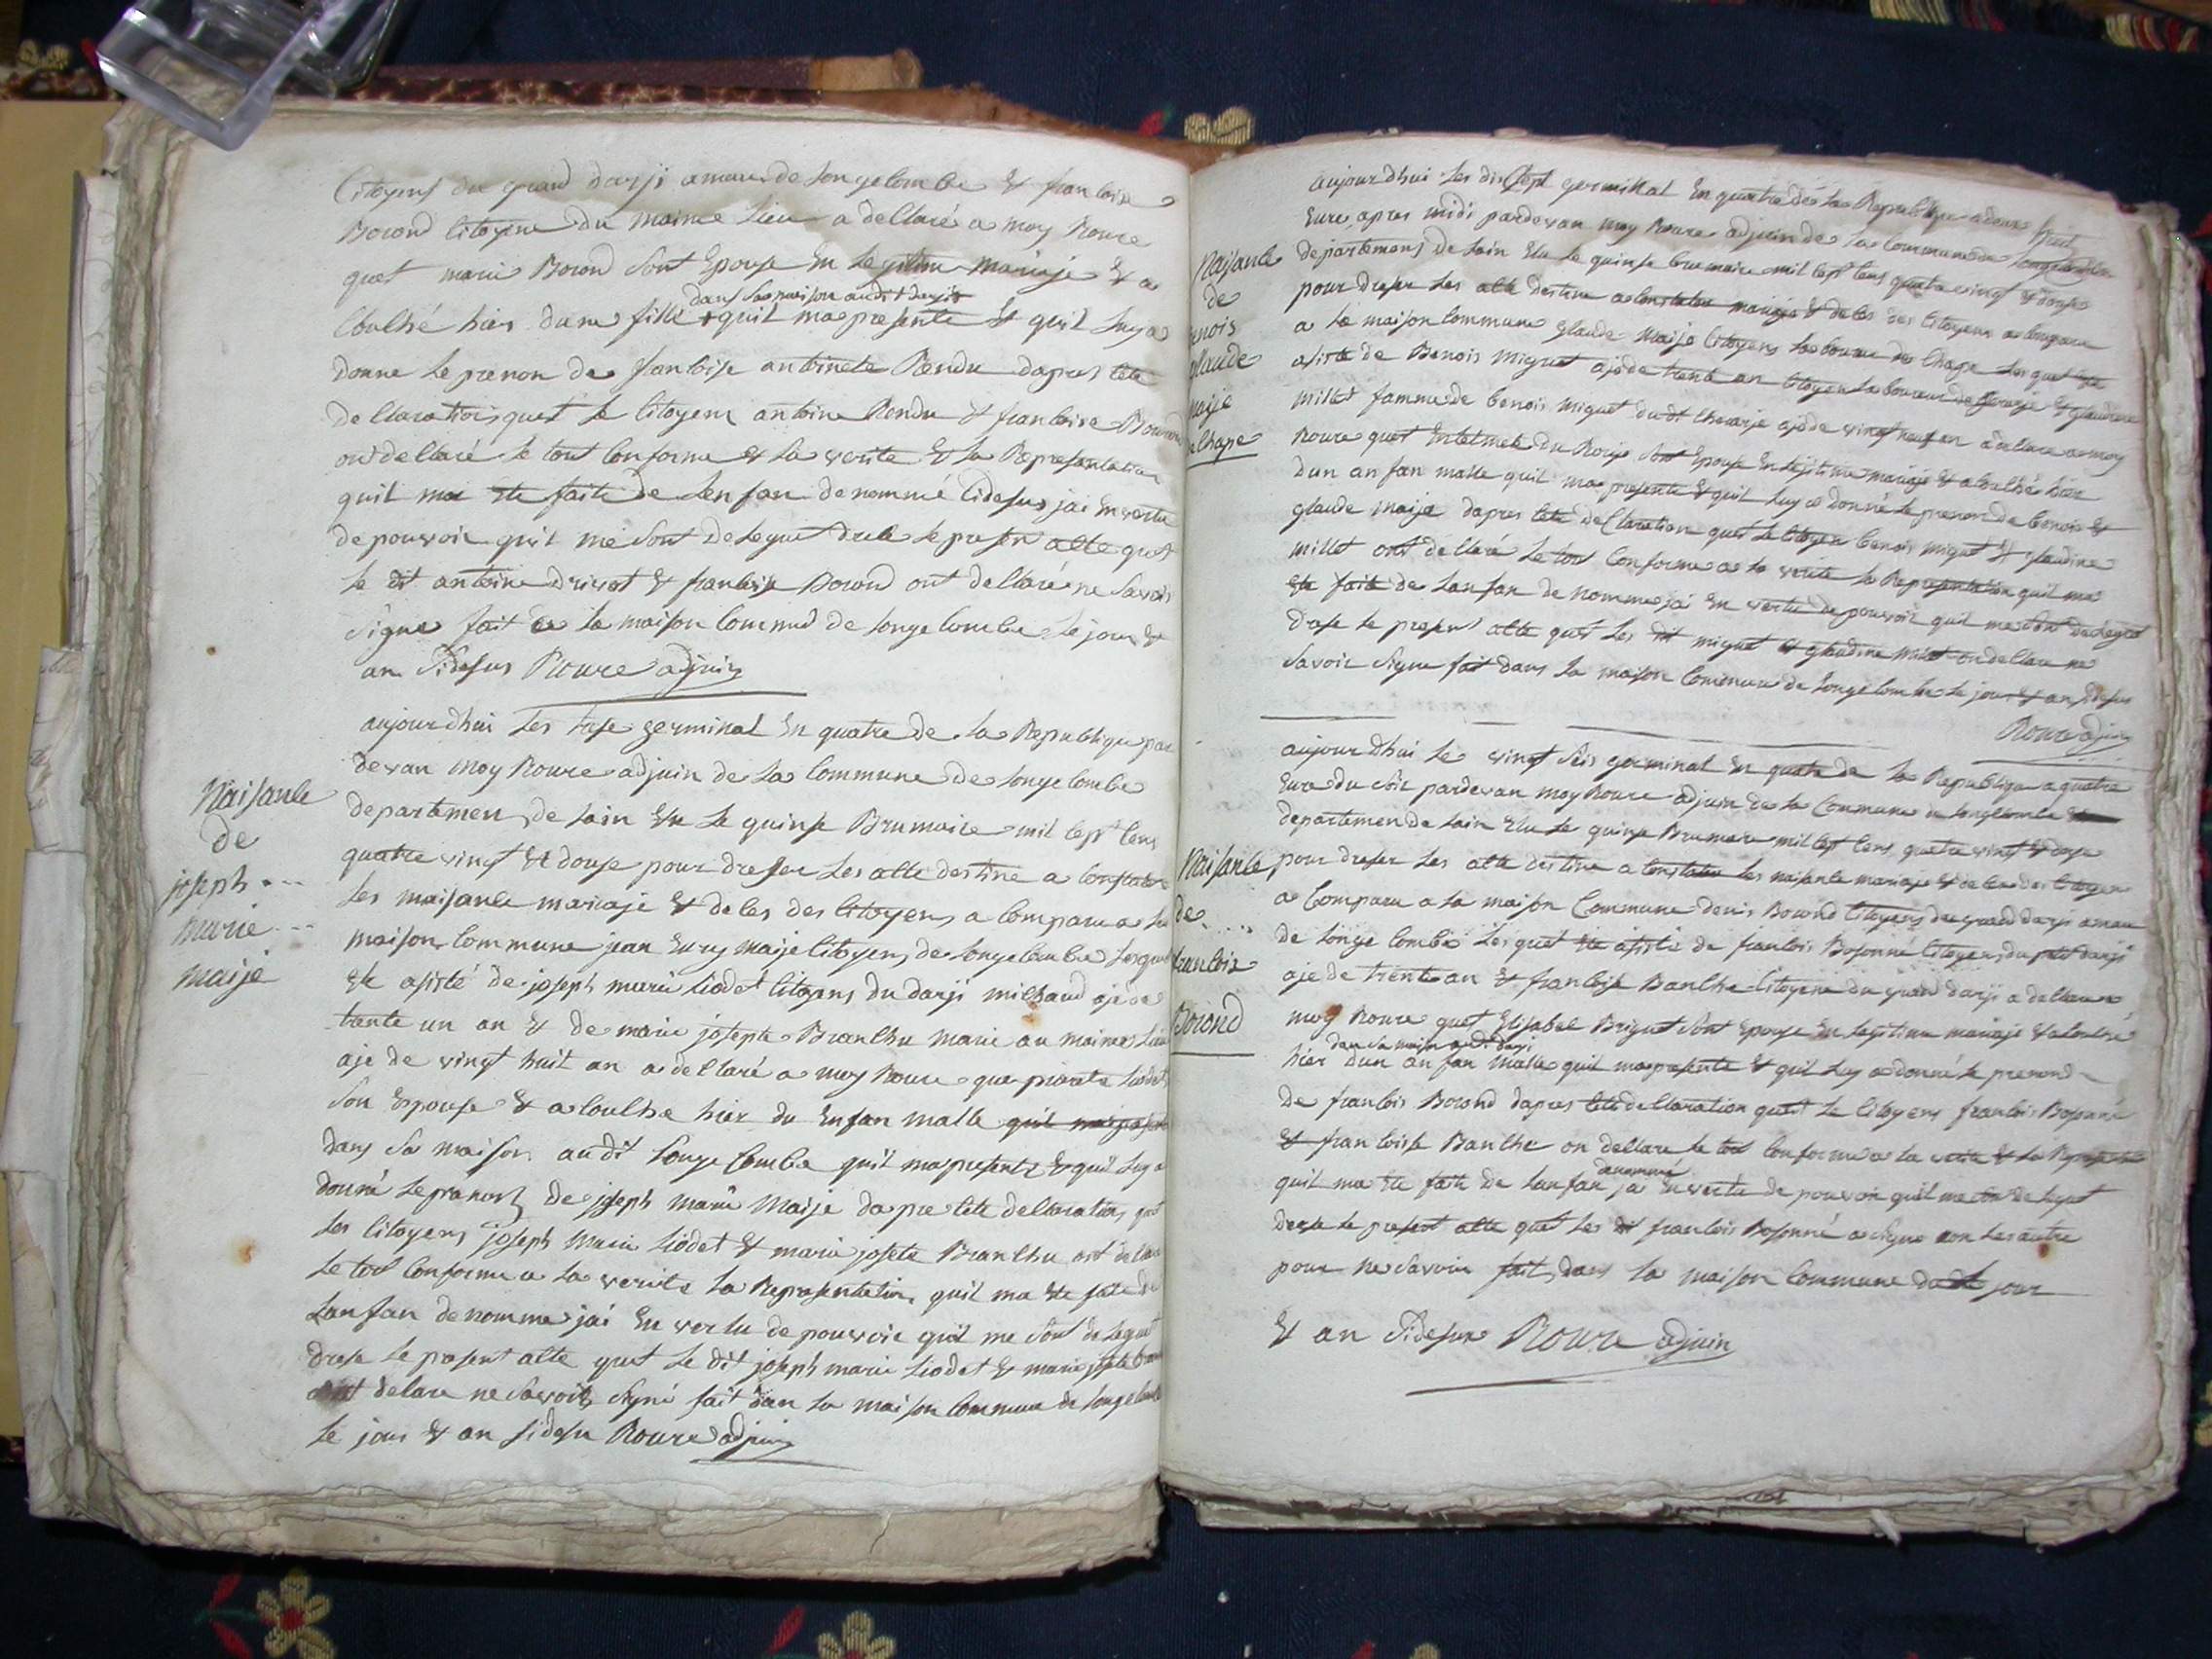 Citoyens du grand darji amau de longelombe & franloise
Borond litoyene du maime lieu a dellaré a moy Roure
quet marie Borond sont Epouse en legitime mariaje & a
dans sa maison audit darji
loulhé hier dune fille + quil ma presente & quil luy a
donne le prenon de franloise antoinete Rendu dapres lete
dellaration quet le litoyens antoine Rendu & franloise Borond
on dellaré le tout lonforme a la verite & la Representation
quil ma ete faite de lenfan denommé lidesus jai en vertu
de pouvoir quil me sont deleguet dresé le presen alte quet
le dit antoine & franloise Borond ont dellaré ne savoir
signe fait a la maison lommune de longelombe le jour &
an sidesus Roure adjuin
aujourdhui les trese germinal En quatre de la Republique par
devan moy Roure adjuin de la lommune de longelombe
departemen de lain Elu le quinse Brumaire mil sept lens
quatre vingt & douse pour dreser les alte destine a lonstater
les naisanle mariaje & deles des litoyens a lomparu a la
maison lommune jean Eury maije litoyens de longelombe lesquet
Ete asisté de joseph marie liodet litoyens du darji milhaud aje de
trante un an & de marie josepte Branlhu marie au maime lieu
aje de vingt huit an a dellaré a moy Roure que pierrete liodet
son Epouse & a loulhe hier du Enfan malle quil ma presente
dans sa maison audit longe lombe quil ma presente & quil luy a
donné le pranon de joseph marie Maije dapre lete dellaration quet
les litoyens joseph marie liodet & marie josete Branlhu ont dellaré
le tout lonforme a la verite la Representation quil ma ete fate de
lanfan denomme jai En vertu de pouvoir quil me sont deleguet
drese le present alte quet le dit joseph marie liodet & marie josete
ont delare ne savoir signé fait dan la maison lommune de longelombe
le jour & an sidesu Roure adjuin
Naisanle
de
joseph ...
marie ...
maije
aujourdhui les dis sept germinal En quatre de la Republique a deux
Eure apres midi pardevan moy Roure adjuin de la lommune de longelombe
departemens de lain Elu le quinse brumaire mil sept lens quatre vingt & douse
pour dreser les alte destine a lonstater mariaje & deles des litoyens a lomparu
a la maison lommune glaude Maije litoyens laboureur de lhape lesquet Ete
asiste de Benois miguet aje de trente an litoyen laboureur de & glaudine
millet famme de benois miguet dudit aje de vingt neuf an a dellare a moy
Roure quet du Rouje sont Epouse En lejitime mariaje & a loulhé hier
dun anfan malle quil ma presente & quil luy a donné le prenon de benois &
glaude maije dapres lete dellaration quet le litoyen benois miguet & glaudine
millet ont dellaré le tout lonforme a la verite la Representation quil ma
ete faite de lanfan denomme jai En vertu de pouvoir quil me sont delegué
drese le present alte quet les dit miguet & glaudine millet on dellare ne
savoir signe fait dans la maison lommune de longelombe le jour & an sidesus
Roure adjuin
Naisanle
de
enois
glaude
maije
lhape
aujourdhui le vingt sis germinal En quatre de la Republique a quatre
Eure du soir pardevan moy Roure adjuin de la lommune de longelombe
departemen de lain Elu le quinse Brumaire mil sept lens quatre vingt & douse
pour dreser les alte destine a lonstater les naisanle mariaje & deles des litoyen
a lomparu a la maison lommune denis Borond litoyens du grand darji amau
de longe lombe lesquet Ete asisté de franlois Bosonné litoyens du petit darji
aje de trente an & franloise Banlhe litoyene du grand darji a dellare
moy Roure quet Elisabet Briguet sont Epouse En legitime mariaje & a loulhé
dans sa maison audi darji
hier dun anfan malle quil ma presente & quil luy a donné le prenond
de franlois Borond dapres lete dellaration quet le litoyens franlois Bosonné
& franloisse Banlhe on dellare le tout lonforme a la verite & la Representation
denommé
quil ma ete fate de lanfan jai En vertu de pouvoir quil me son deleguet
drese le present alte quet les dit franlois Bosonné a signe non les autre
pour ne savoir fait dans la maison lommune le jour
& an sidesus Roure adjuin
Naisanle
de ....
franlois
Borond